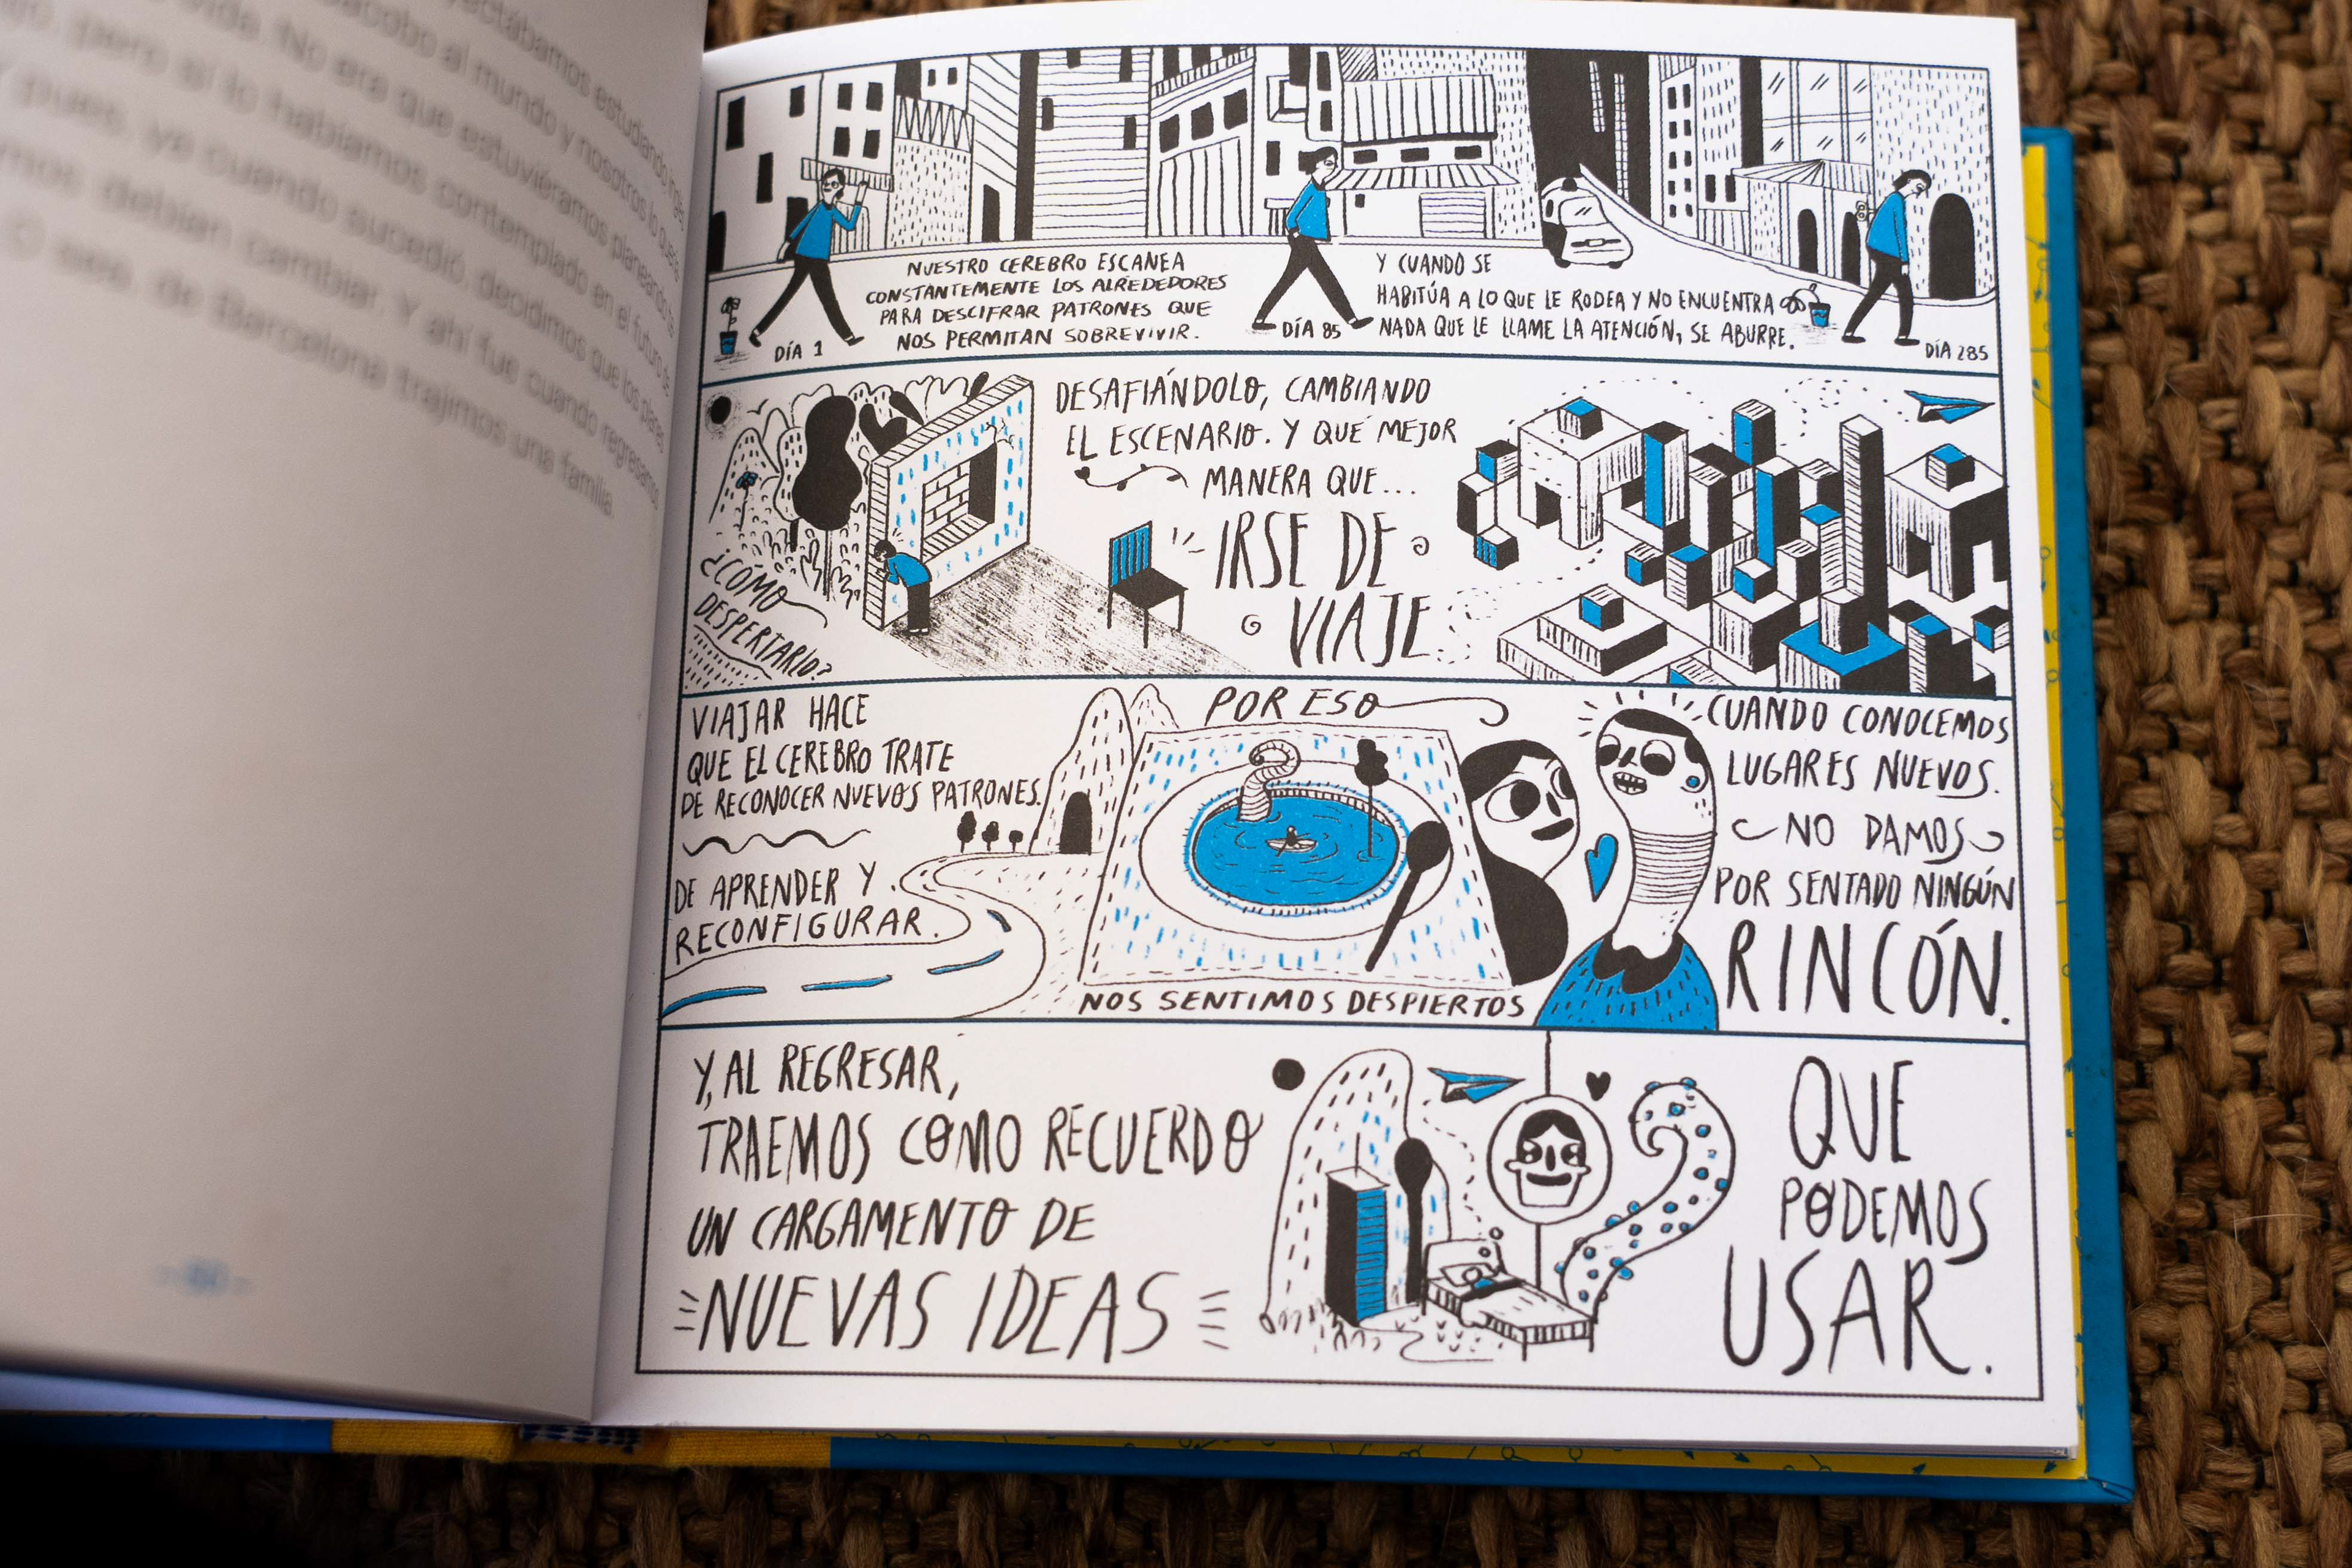 yectábamos estudiando inglés,
Jacobo al mundo y nosotros lo quería
vida. No era que estuviéramos planeando
pero sí lo habíamos contemplado en el futuro de
pues, ya cuando sucedió, decidimos que los planes
debían cambiar. Y ahí fue cuando regresamos
O sea, de Barcelona trajimos una familia
NUESTRO CEREBRO ESCANEA
CONSTANTEMENTE LOS ALREDEDORES
PARA DESCIFRAR PATRONES QUE
NOS PERMITAN SOBREVIVIR.
DÍA 1
Y CUANDO SE
HABITÚA A LO QUE LE RODEA Y NO ENCUENTRA
NADA QUE LE LLAME LA ATENCIÓN, SE ABURRE.
DÍA 85
DÍA 285
¿CÓMO
DESPERTARLO?
DESAFIÁNDOLO, CAMBIANDO
EL ESCENARIO. Y QUÉ MEJOR
MANERA QUE...
IRSE DE
VIAJE
VIAJAR HACE
QUE EL CEREBRO TRATE
DE RECONOCER NUEVOS PATRONES.
DE APRENDER Y
RECONFIGURAR.
POR ESO
NOS SENTIMOS DESPIERTOS
CUANDO CONOCEMOS
LUGARES NUEVOS.
NO DAMOS
POR SENTADO NINGÚN
RINCÓN.
Y, AL REGRESAR,
TRAEMOS COMO RECUERDO
UN CARGAMENTO DE
NUEVAS IDEAS
QUE
PODEMOS
USAR.